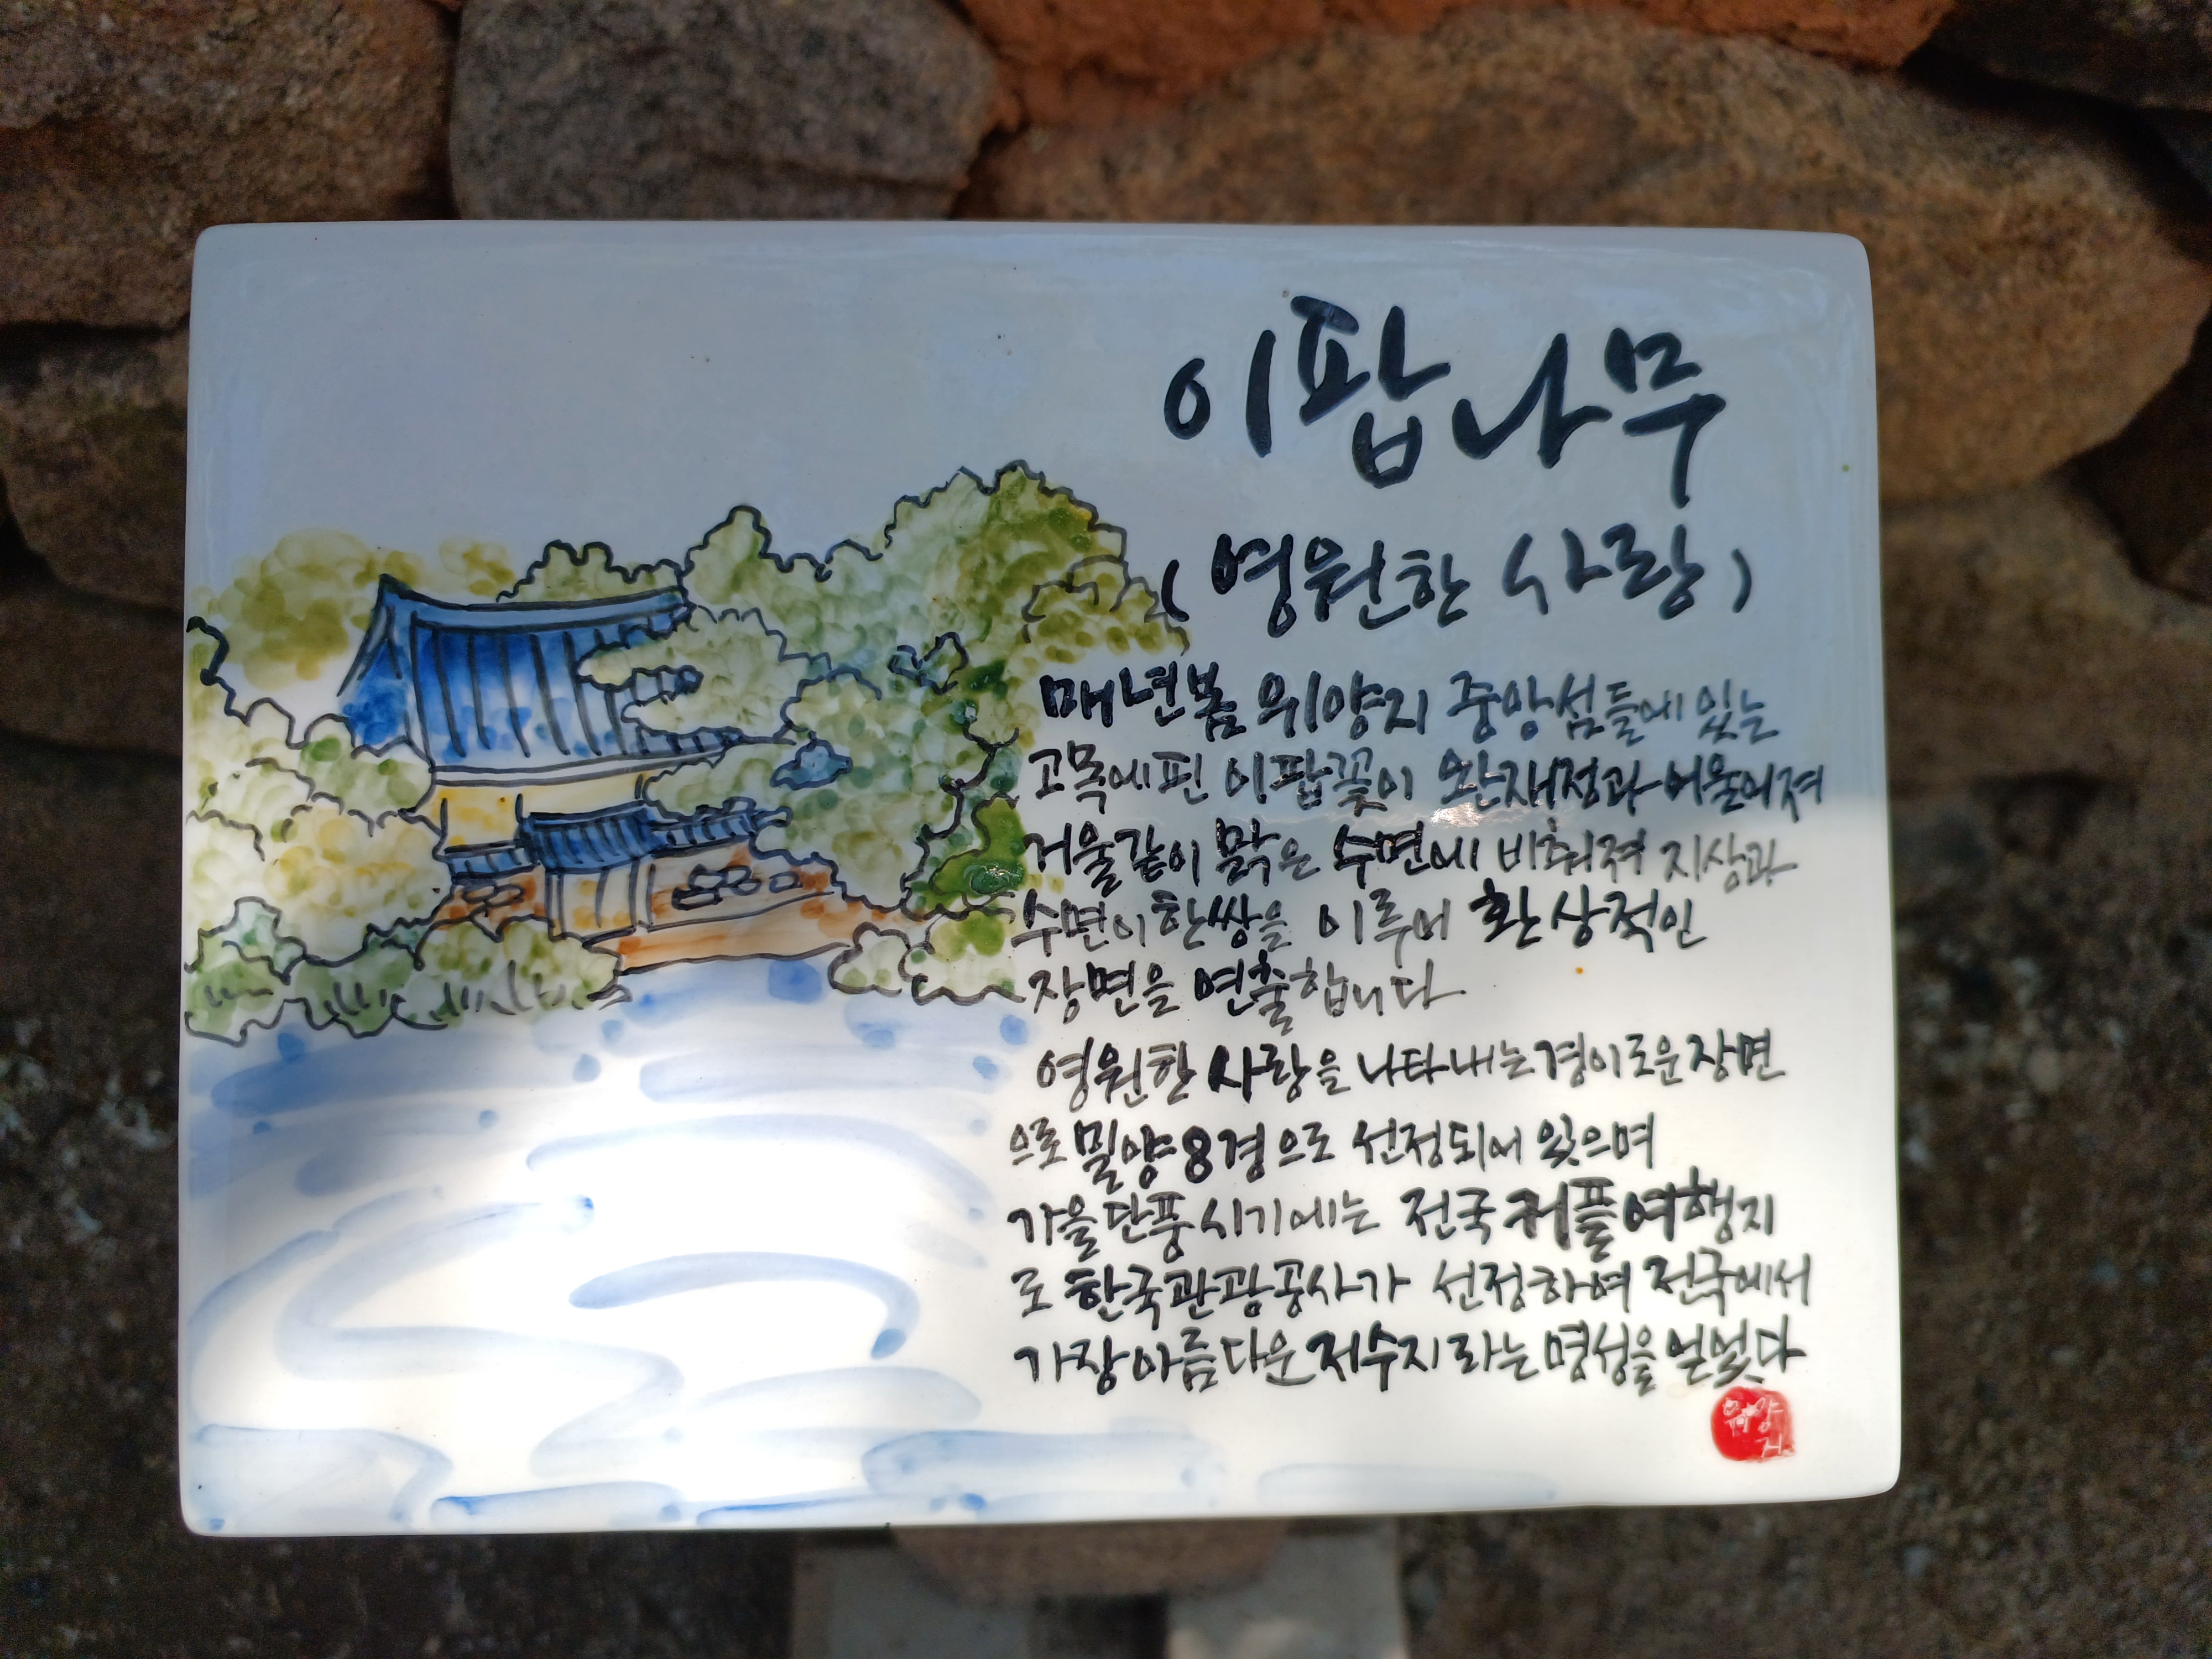 이팝나무
(영원한 사랑)
매년봄 위양지 중앙섬들에 있는
고목에 핀 이팝꽃이 완재정과 어울어져
거울같이 맑은 수면에 비춰져 지상과
수면이 한쌍을 이루어 환상적인
장면을 연출합니다
영원한 사랑을 나타내는 경이로운 장면
으로 밀양8경으로 선정되어 있으며
가을 단풍시기에는 전국 커플여행지
로 한국관광공사가 선정하여 전국에서
가장 아름다운 저수지라는 명성을 얻었다
위양지